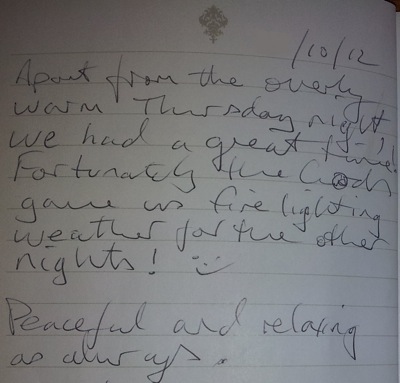 /10/12
Apart from the overly
warm Thursday night,
we had a great time!
Fortunately the Gods
gave us fire lighting
weather for the other
nights! :-)
Peaceful and relaxing
as always.